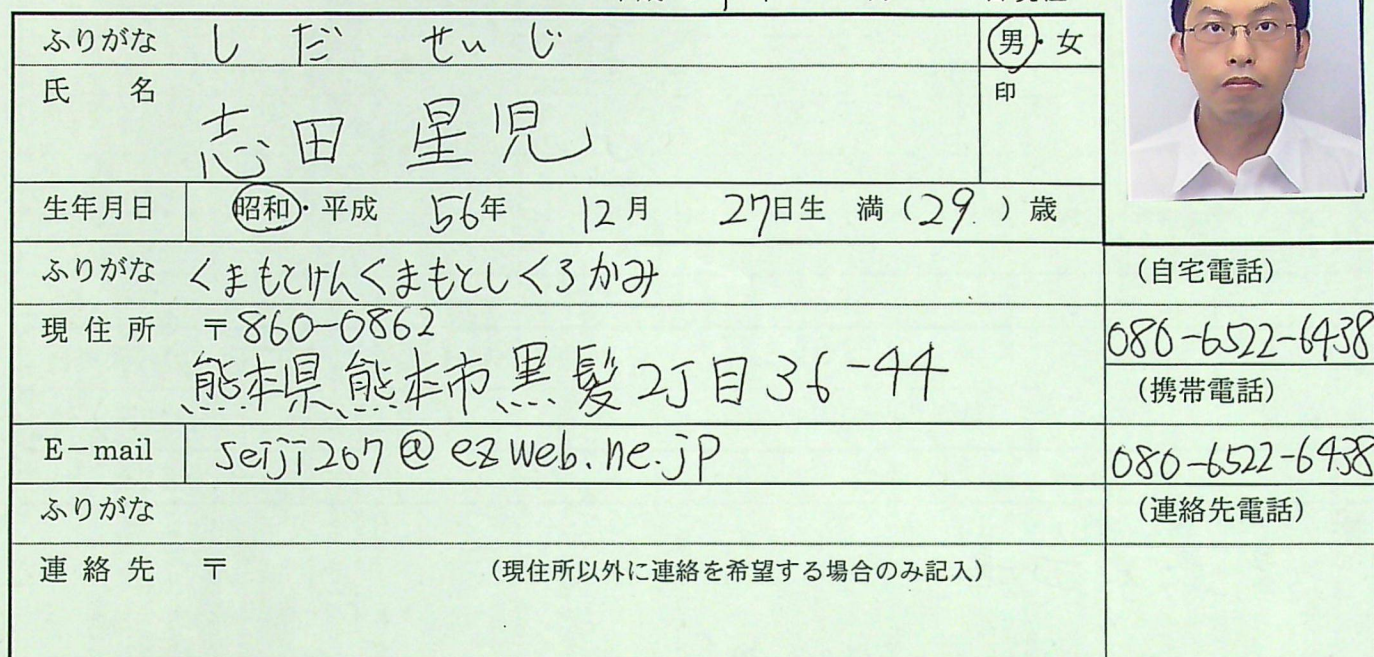 ふりがな しだ せいじ 男・女
氏 名 志田 星児 印
生年月日 昭和・平成 56年 12月 27日生 満(29.)歳
ふりがな くまもとけんくまもとしくろかみ
(自宅電話)
現住所 〒860-0862
080-6522-6438
熊本県熊本市黒髪2丁目36-44
(携帯電話)
E-mail seiji267@ezweb.ne.jp
080-6522-6438
ふりがな
(連絡先電話)
連絡先 〒 (現住所以外に連絡を希望する場合のみ記入)